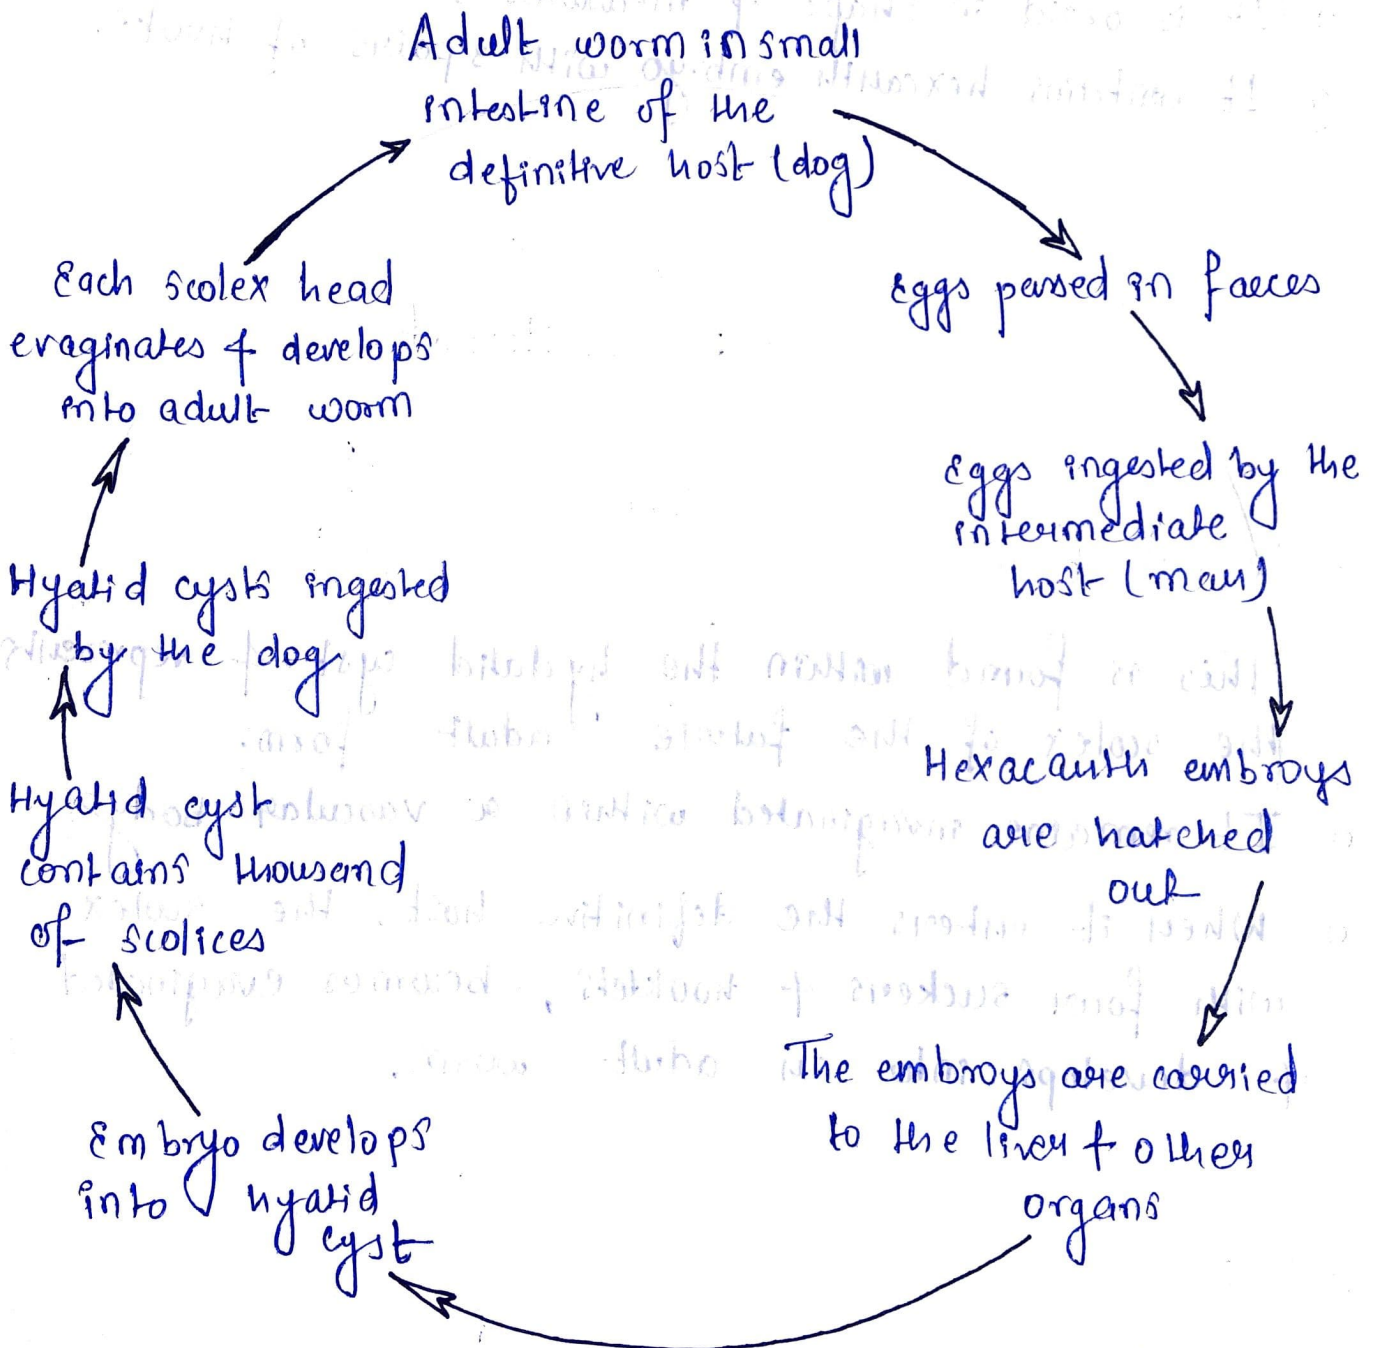 Adult worm in small
intestine of the
definitive host (dog)
Eggs passed in faeces
Eggs ingested by the
intermediate
host (man)
Hexacanth embroys
are hatched
out
The embroys are carried
to the liver & other
organs
Embryo develops
into hyatid
cyst
Hyatid cyst
contains thousand
of scolices
Hyatid cysts ingested
by the dog
Each scolex head
evaginates & develops
into adult worm